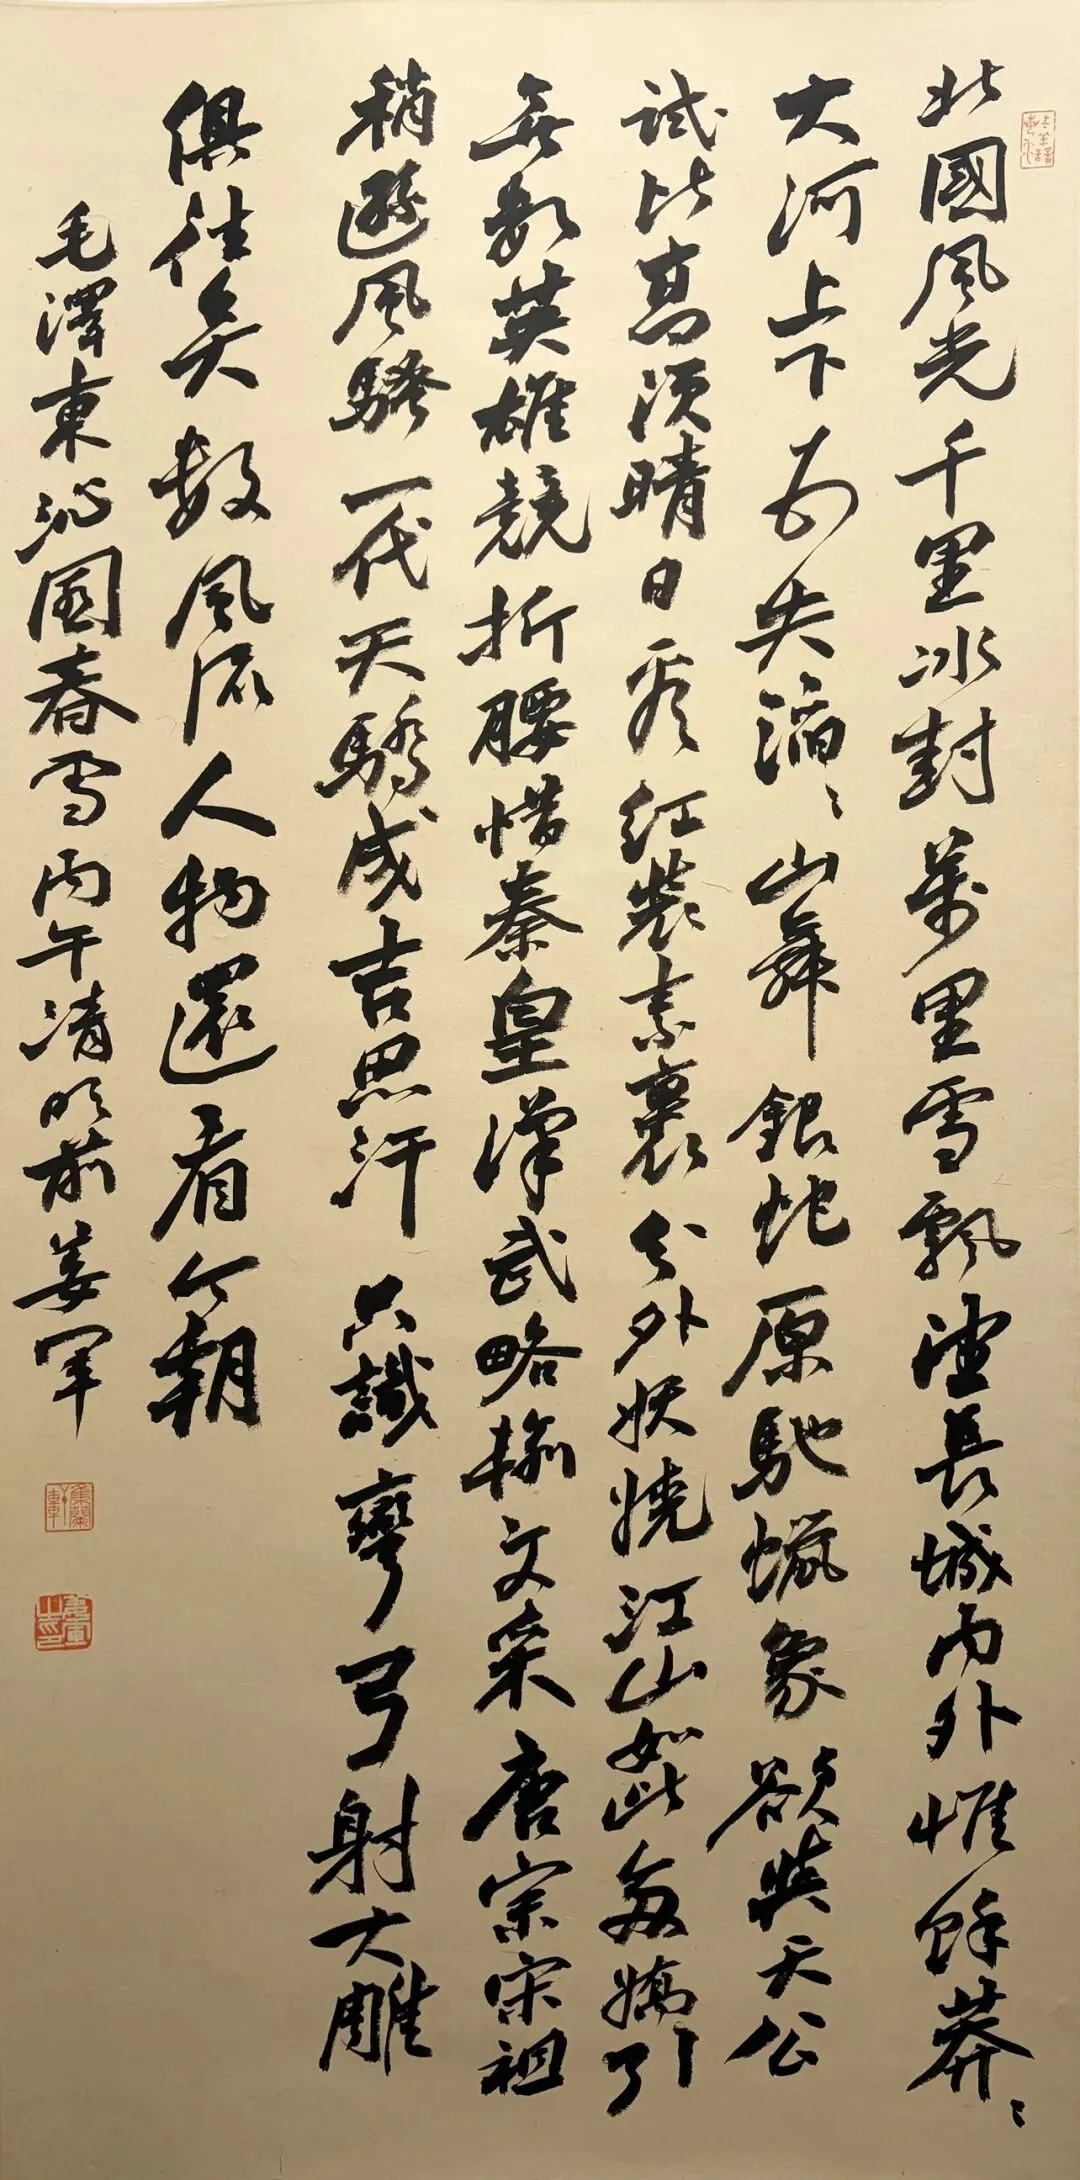 北國風光千里冰封萬里雪飄望長城內外惟餘莽〻
大河上下頓失滔〻山舞銀蛇原馳蠟象欲與天公
試比高須晴日看紅裝素裹分外妖嬈江山如此多嬌引
無數英雄競折腰惜秦皇漢武略輸文采唐宗宋祖
稍遜風騷一代天驕成吉思汗只識彎弓射大雕
俱往矣數風流人物還看今朝
毛澤東沁園春雪丙午清明前姜軍